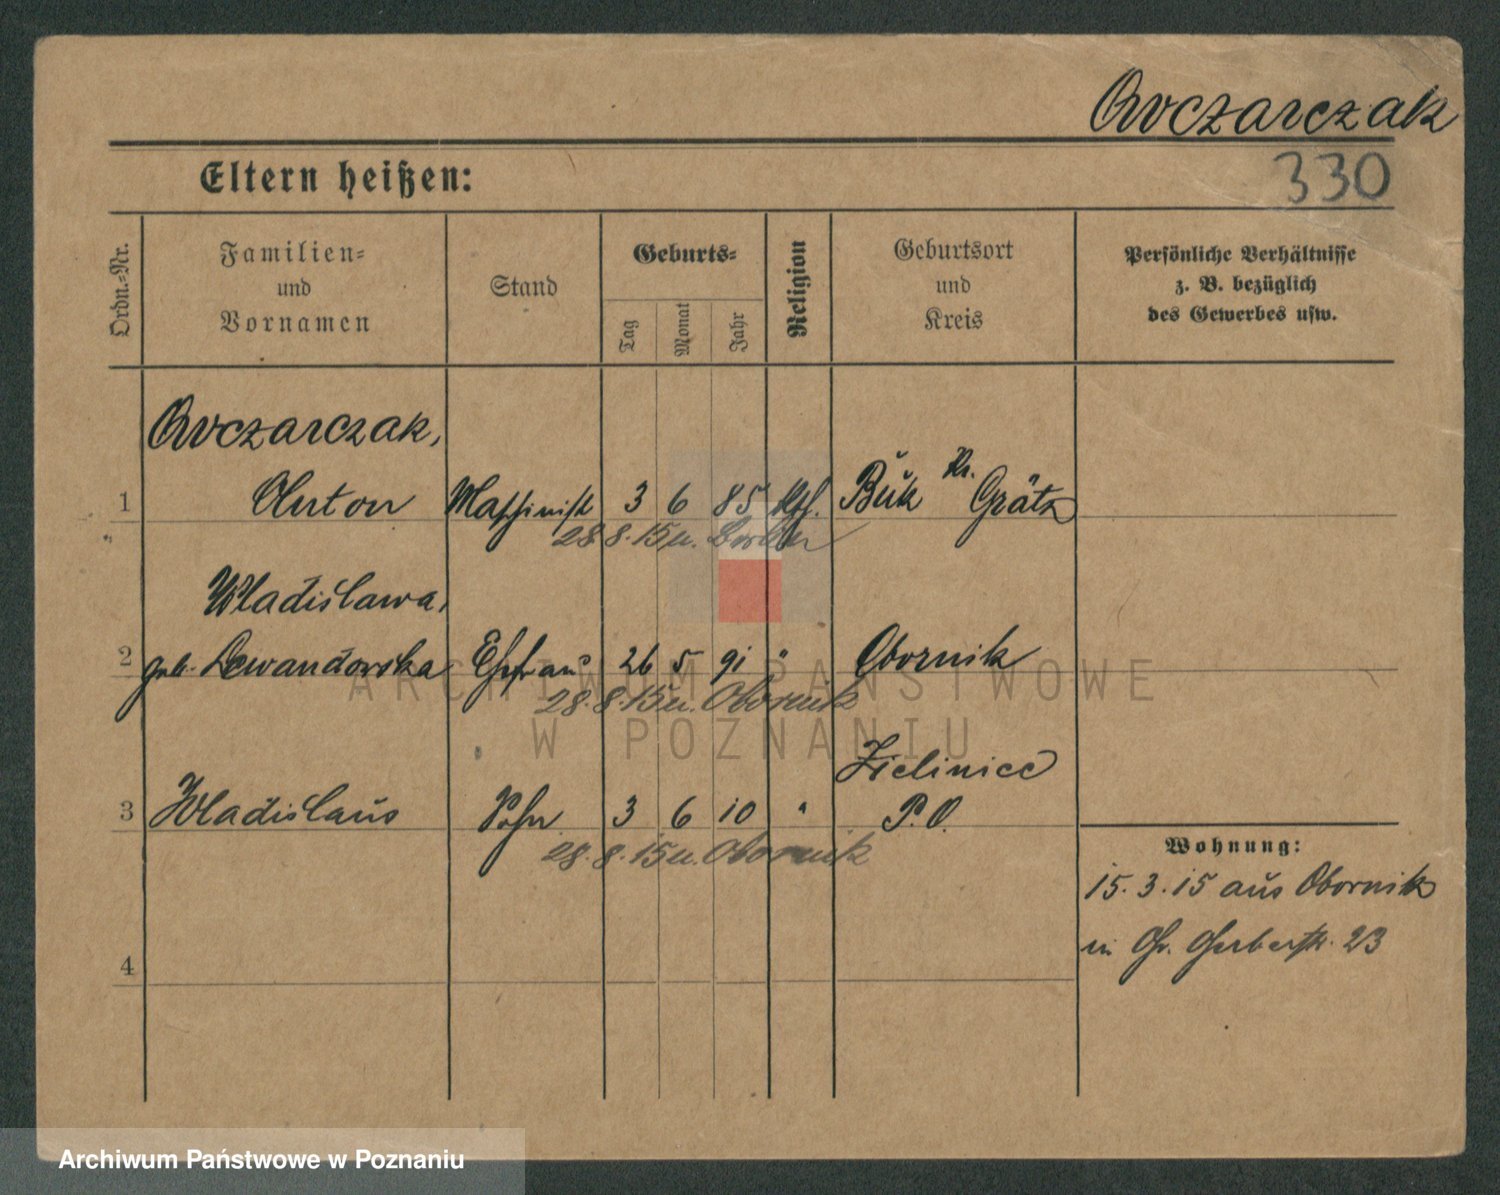 Owczarczak
330
Eltern heißen:
Ordn.-Nr.
Familien-
und
Vornamen
Stand
Geburts-
Tag
Monat
Jahr
Religion
Geburtsort
und
Kreis
Persönliche Verhältnisse
z. B. bezüglich
des Gewerbes usw.
Owczarczak,
1 Anton Maschinist 3 6 85 kth. Buk Kr. Grätz
28.8.15 n. Berlin
Wladislawa,
2 geb. Lewandowska Ehefrau 26 5 91 " Obornik
28.8.15 n. Obornik
Zielinice
3 Wladislaus Sohn 3 6 10 " P.O.
28.8.15 n. Obornik
4
Wohnung:
15.3.15 aus Obornik
n Gr. Gerberstr. 23
ARCHIWUM PAŃSTWOWE
W POZNANIU
Archiwum Państwowe w Poznaniu